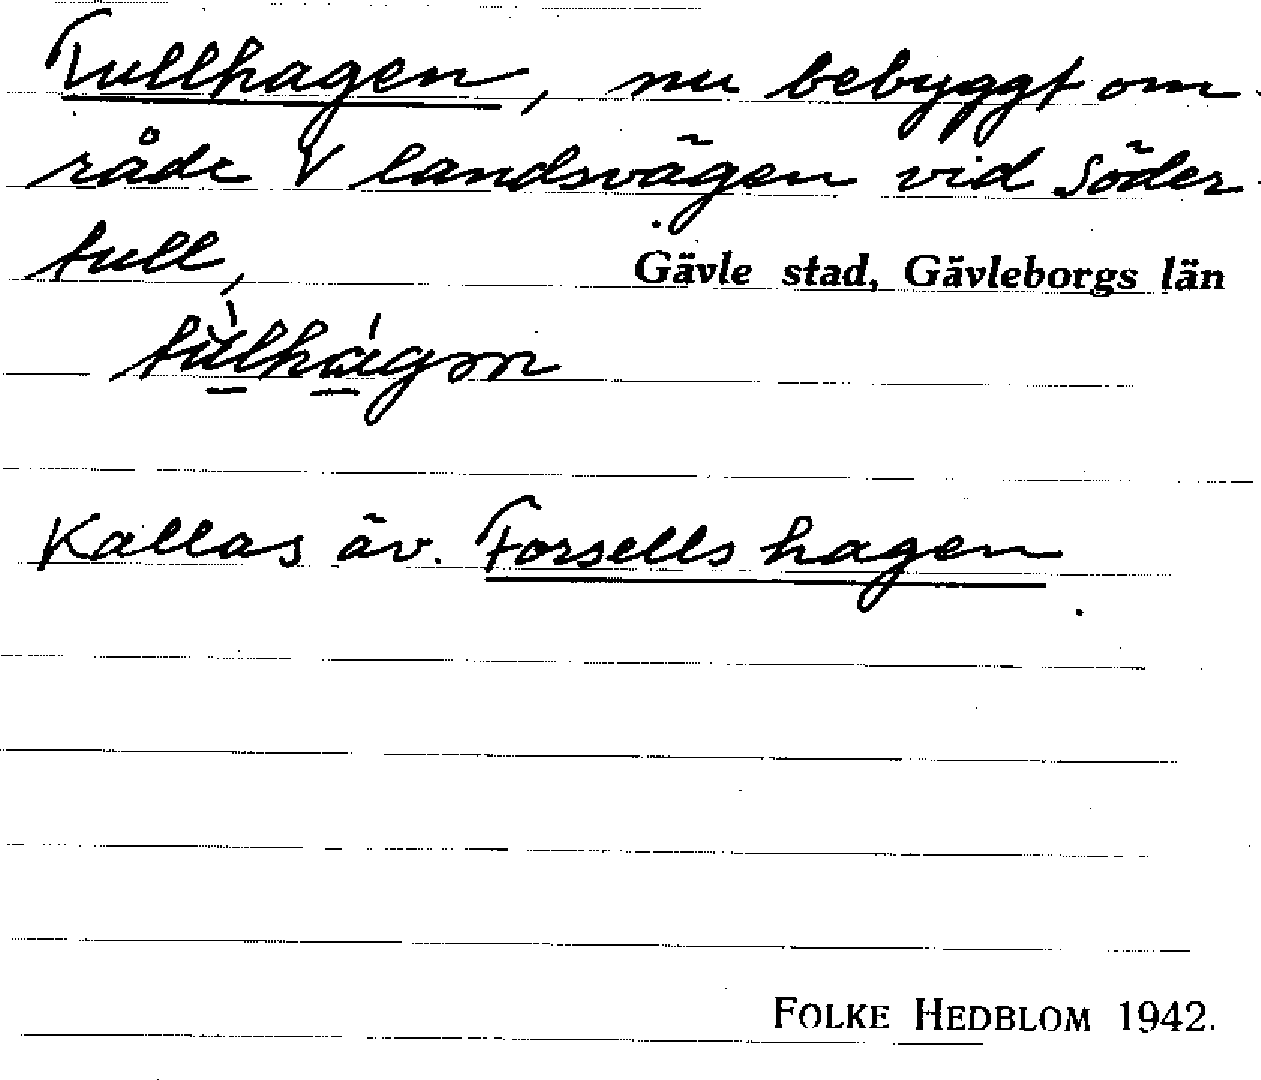 Tullhagen, nu bebyggt om
råde V landsvägen vid Söder
tull,
Gävle stad, Gävleborgs län
Kallas äv. Forsells hagen
FOLKE HEDBLOM 1942.